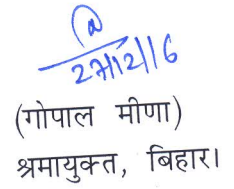 27/12/16
(गोपाल मीणा)
श्रमायुक्त, बिहार।